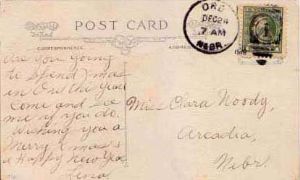 POST CARD
CORRESPONDENCE
ORD
DEC 24
7 AM
NEBR.
Are you going
to spend Xmas
in Ord this year
Come and see
me if you do.
Wishing you a
Merry Xmas &
a Happy New Year
Lena
Miss Clara Moody,
Arcadia,
Nebr.